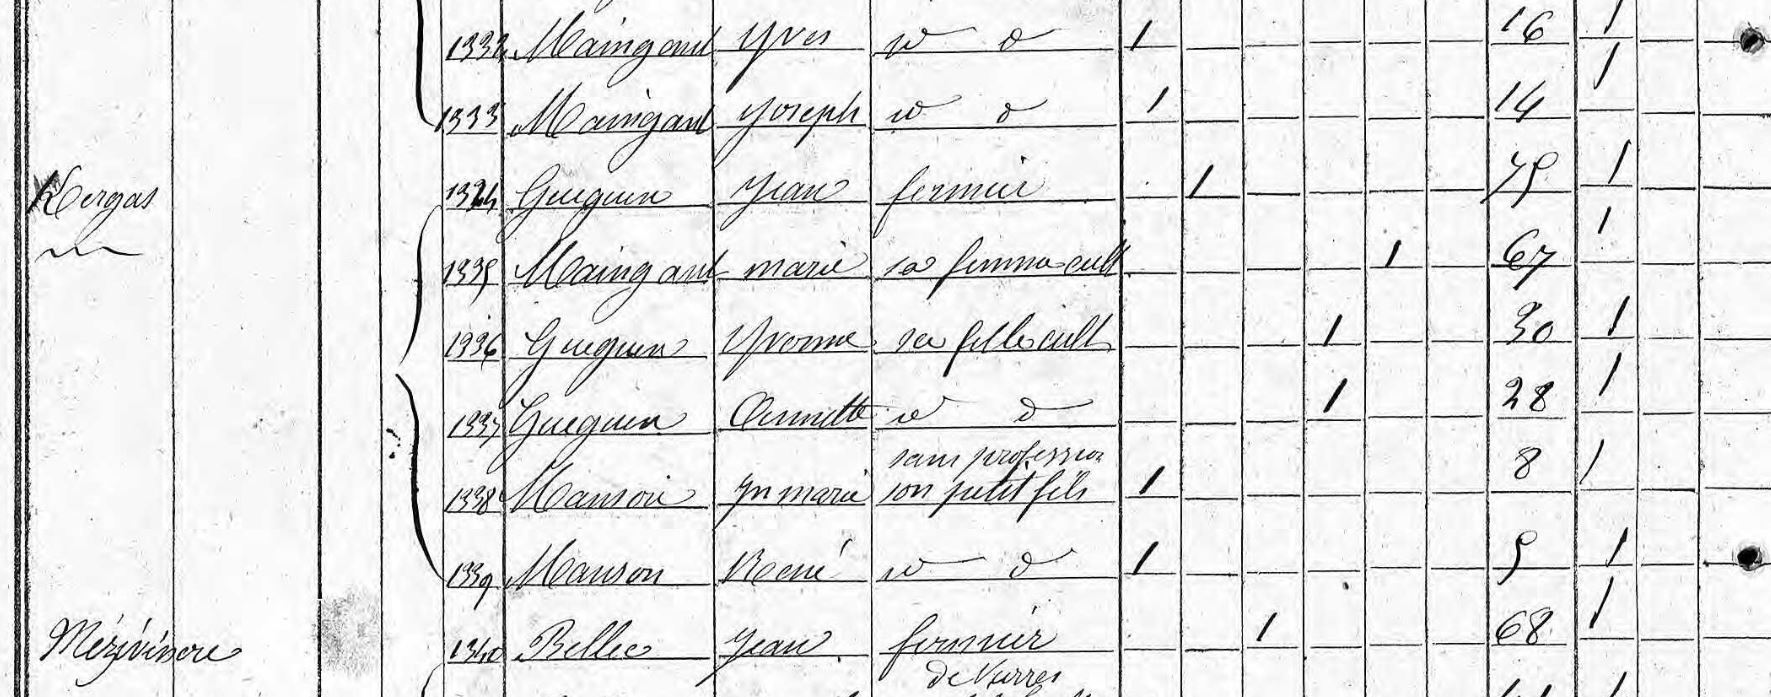 1332 Maingant Yves id d 1 16 1
1333 Maingant Joseph id d 1 14 1
Kergas 1334 Gueguen Jean fermier 1 75 1
1335 Maingant marie sa femme cult 1 67 1
1336 Gueguen Yvonne sa fille cult 1 30 1
1337 Gueguen Annette id d 1 28 1
sans profession
1338 Manson Jn marie son petit fils 1 8 1
1339 Manson René id d 1 5 1
Mézivinore 1340 Bellec Jean fermier 1 68 1
de terres